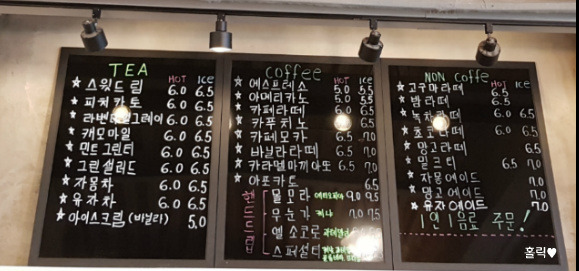 TEA
HOT ICE
★ 스윗드림 6.0 6.5
★ 피치카토 6.0 6.5
★ 라벤더얼그레이 6.0 6.5
★ 캐모마일 6.0 6.5
★ 민트그린티 6.0 6.5
★ 그린샐러드 6.0 6.5
★ 자몽차 6.0 6.5
★ 유자차 6.0 6.5
★ 아이스크림 (바닐라) 5.0
Coffee
HOT Ice
★ 에스프레소 5.0 5.5
★ 아메리카노 5.0 5.5
★ 카페라떼 6.0 6.5
★ 카푸치노 6.5
★ 카페모카 6.5 7.0
★ 바닐라라떼 6.5
★ 카라멜마끼아또 6.5 7.0
★ 아포카토 6.5
핸드드립
물모라 9.0 9.5
무눈가 케냐 7.0 7.5
엘소코로
스퍼셜티
NON Coffe
HOT ICE
★ 고구마라떼 6.5
★ 밤라떼 6.5
★ 녹차라떼 6.0 6.5
★ 초코라떼 6.0 6.5
★ 망고라떼 6.5
★ 밀크티 6.5 7.0
★ 자몽에이드 7.0
★ 망고에이드 7.0
★ 유자에이드 7.0
1인 1음료 주문!
홀릭♥